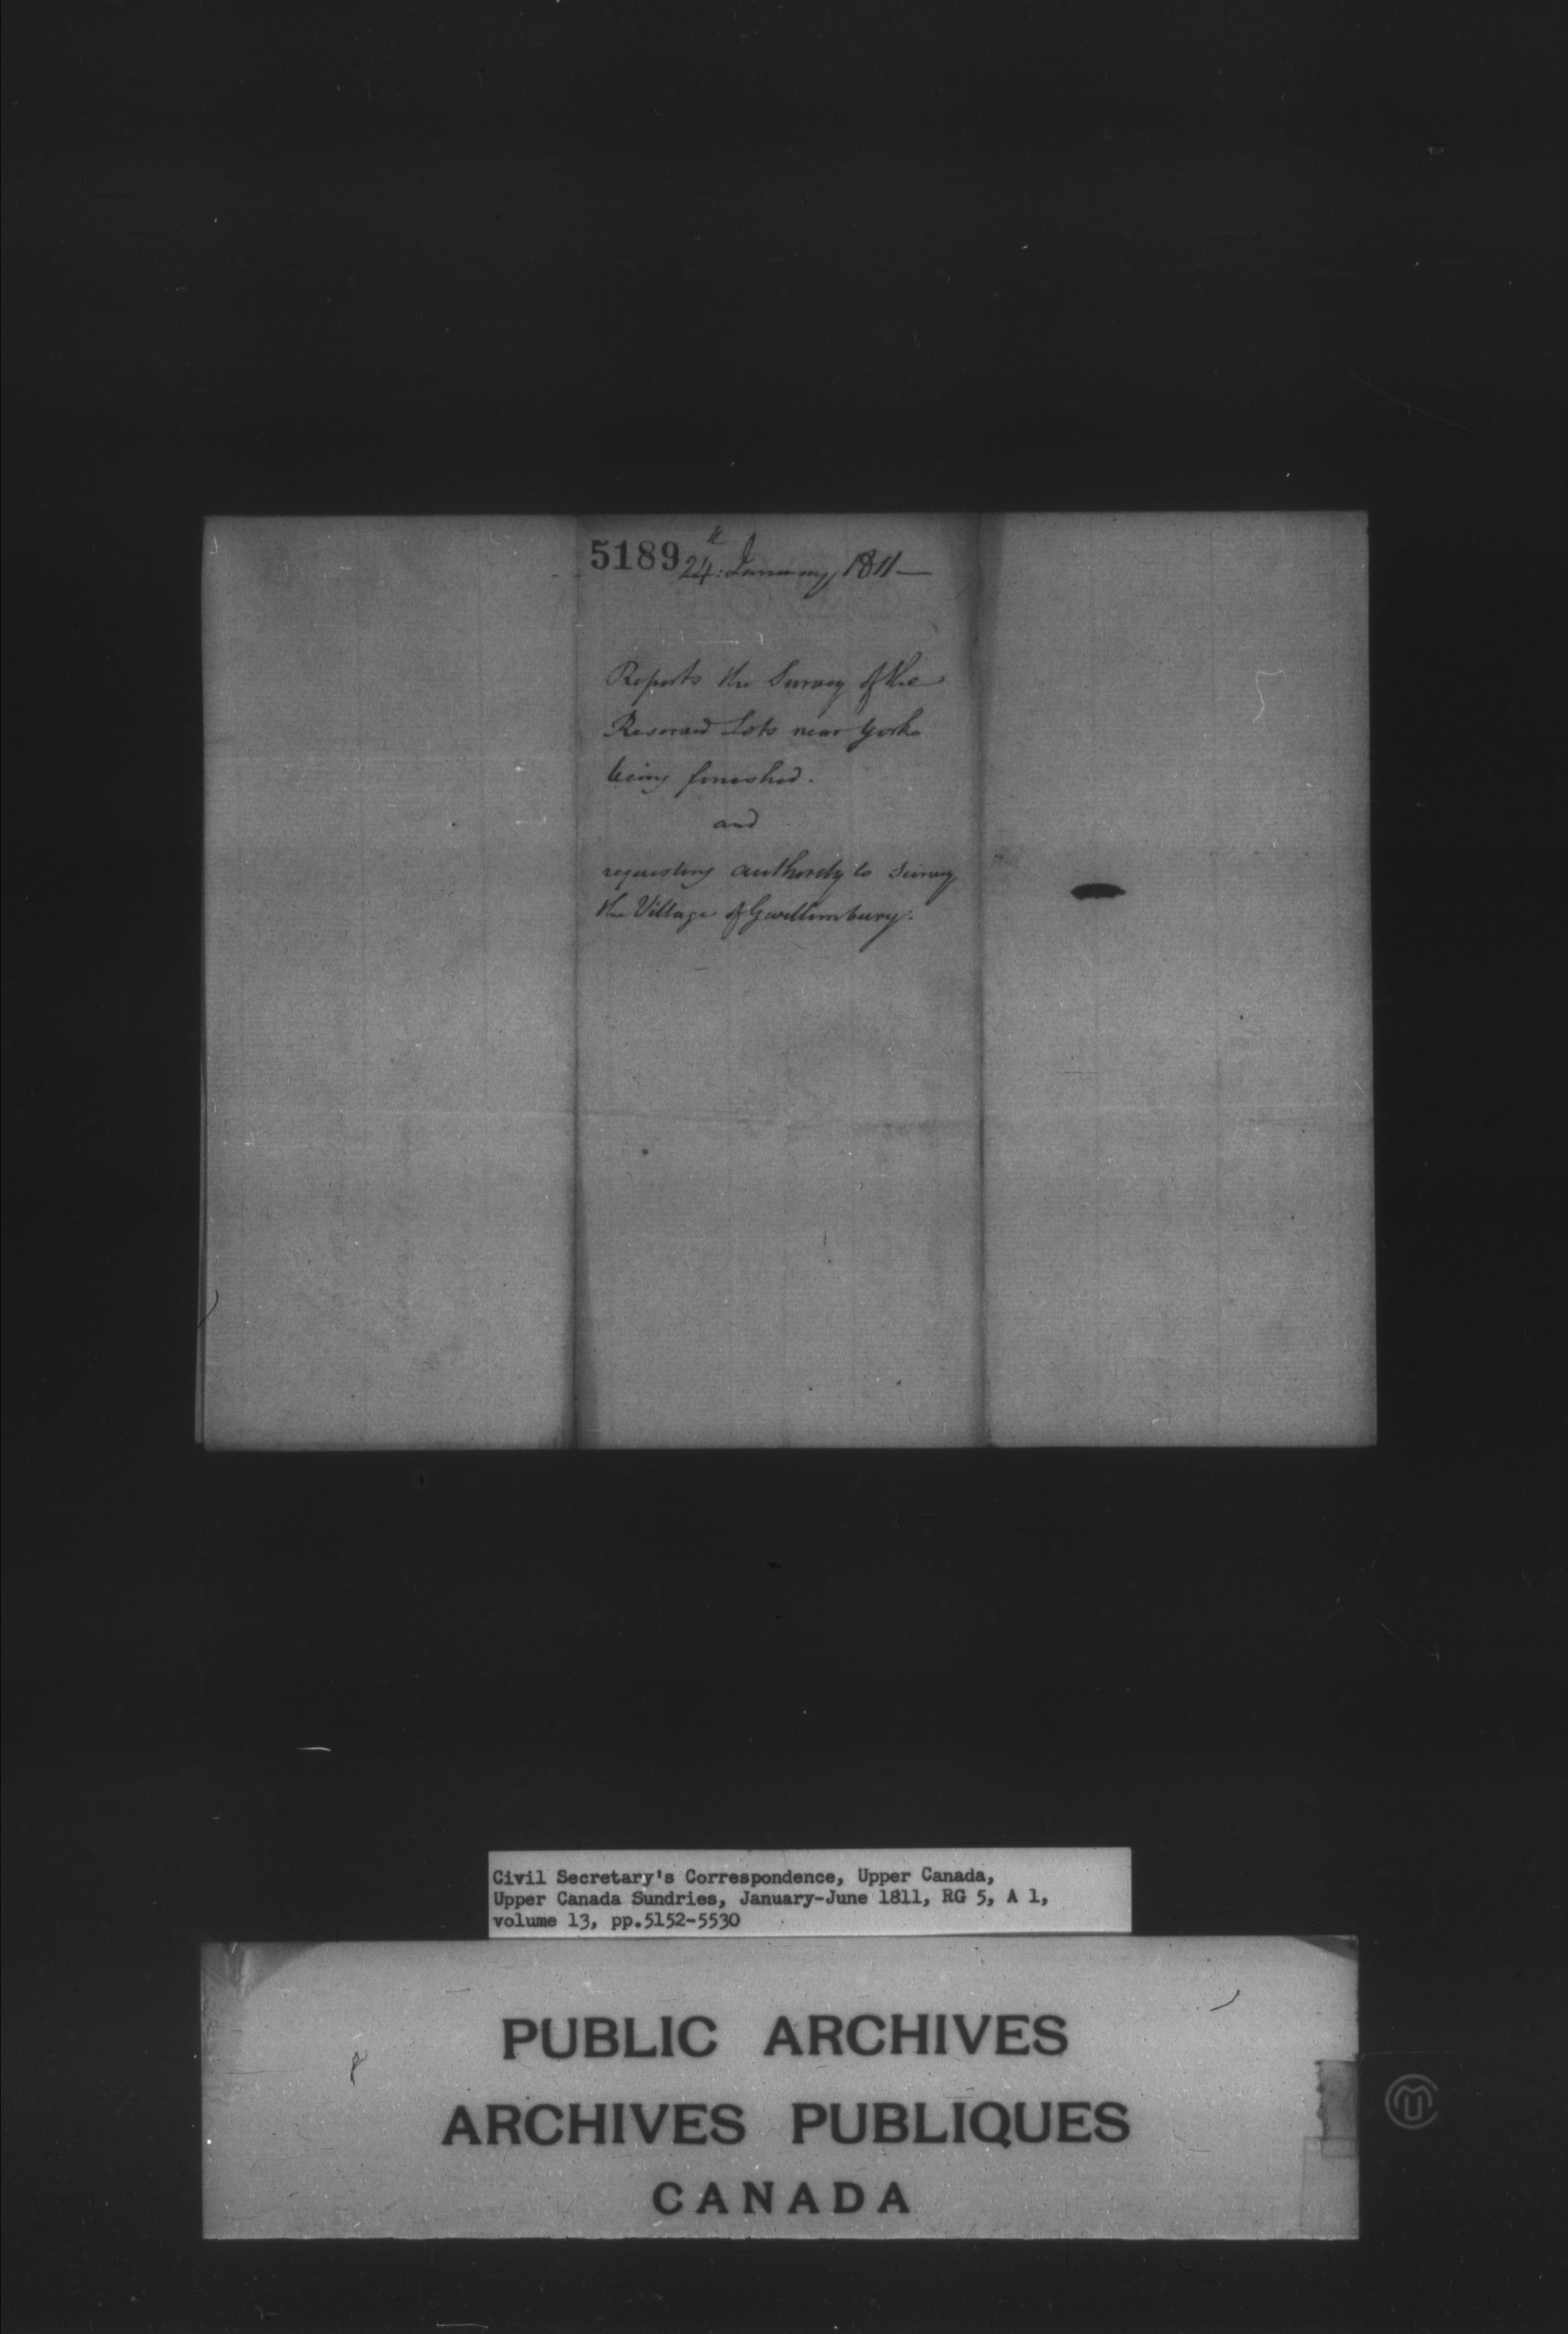 5189 24th January 1811 —
Reports the Survey of the
Reserved Lots near York
being finished.
and
requesting authority to Survey
the Village of Gwillimbury.
Civil Secretary's Correspondence, Upper Canada,
Upper Canada Sundries, January-June 1811, RG 5, A 1,
volume 13, pp.5152-5530
PUBLIC ARCHIVES
ARCHIVES PUBLIQUES
CANADA